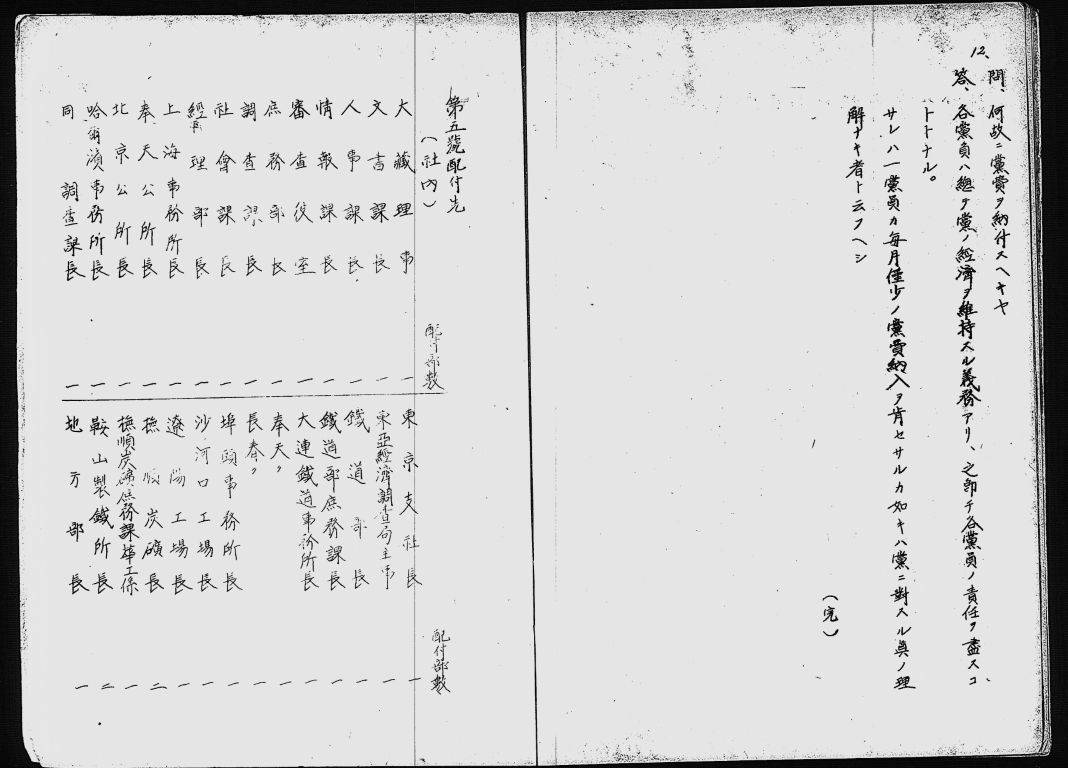 12、
問、何故ニ黨費ヲ納付スヘキヤ
答、各黨員ハ總テ黨ノ經濟ヲ維持スル義務アリ、之卽チ各黨員ノ責任ヲ盡スコ
トトナル。
サレハ一黨員カ每月僅少ノ黨費納入ヲ肯セサルカ如キハ黨ニ對スル眞ノ理
解ナキ者ト云フヘシ
(完)
第五號配付先
(社內)
配付部數
大藏理事 一
文書課長 一
人事課長 一
情報課長 一
審査役室 一
庶務部長 一
調査課長 一
社會課長 一
經理部長 一
上海事務所長 一
奉天公所長 一
北京公所長 一
哈爾濱事務所長 一
同調査課長 一
配付部數
東京支社長 一
東亞經濟調査局主事 一
鐵道部長 一
鐵道部庶務課長 一
大連鐵道事務所長 一
奉天〃 一
長春〃 一
埠頭事務所長 一
沙河口工場長 一
遼陽工場長 一
撫順炭礦長 二
撫順炭礦庶務課華工係 一
鞍山製鐵所長 二
地方部長 一